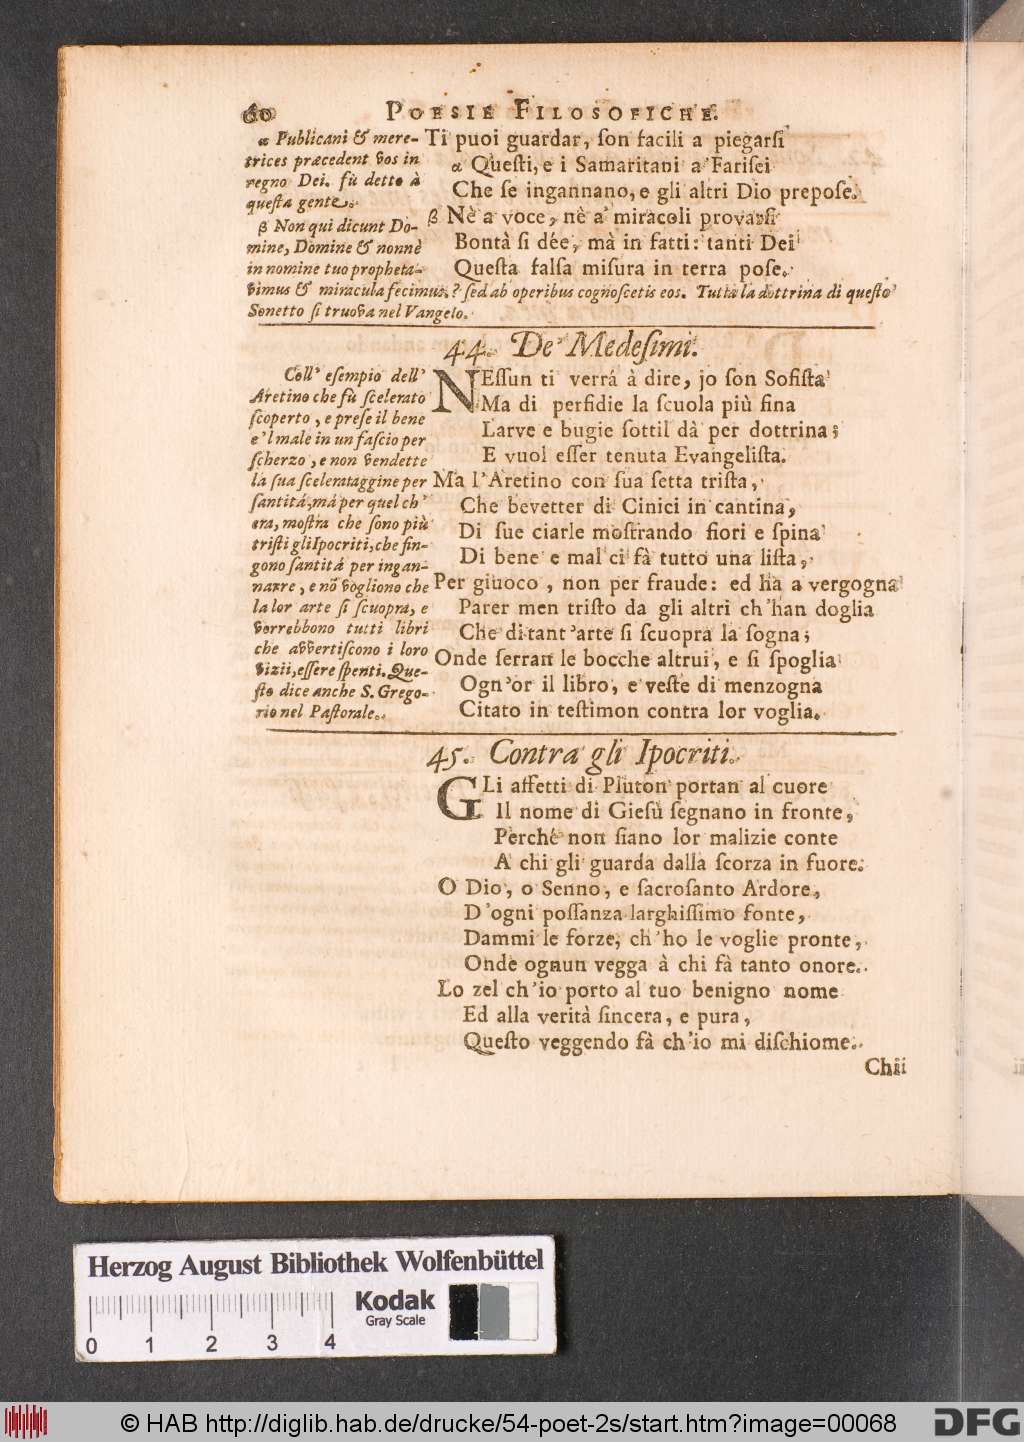 60 POESIE FILOSOFICHE.
α Publicani & mere-
trices præcedent vos in
regno Dei. fù detto à
questa gente.
β Non qui dicunt Do-
mine, Domine & nonnè
in nomine tuo propheta-
vimus & miracula fecimus.? sed ab operibus cognoscetis eos. Tutta la dottrina di questo
Sonetto si truova nel Vangelo.
Ti puoi guardar, son facili a piegarsi
α Questi, e i Samaritani a' Farisei
Che se ingannano, e gli altri Dio prepose.
β Nè a voce, nè a' miracoli provarsi
Bontà si dée, mà in fatti: tanti Dei
Questa falsa misura in terra pose.
44. De' Medesimi.
Coll' esempio dell'
Aretino che fù scelerato
scoperto, e prese il bene
e'l male in un fascio per
scherzo, e non vendette
la sua scelerataggine per
santitá, má per quel ch'
era, mostra che sono più
tristi gli Ipocriti, che fin-
gono santitá per ingan-
narre, e nõ vogliono che
la lor arte si scuopra, e
vorrebbono tutti libri
che avvertiscono i loro
vizii, essere spenti. Que-
sto dice anche S. Grego-
rio nel Pastorale.
NEssun ti verrá à dire, jo son Sofista
Ma di perfidie la scuola più fina
Larve e bugie sottil dà per dottrina;
E vuol esser tenuta Evangelista.
Ma l'Aretino con sua setta trista,
Che bevetter di Cinici in cantina,
Di sue ciarle mostrando fiori e spina
Di bene e mal ci fà tutto una lista,
Per giuoco, non per fraude: ed ha a vergogna
Parer men tristo da gli altri ch'han doglia
Che di tant'arte si scuopra la sogna;
Onde serran le bocche altrui, e si spoglia
Ogn'or il libro, e veste di menzogna
Citato in testimon contra lor voglia.
45. Contra gli Ipocriti.
GLi affetti di Pluton portan al cuore
Il nome di Giesù segnano in fronte,
Perché non siano lor malizie conte
A chi gli guarda dalla scorza in fuore.
O Dio, o Senno, e sacrosanto Ardore,
D'ogni possanza larghissimo fonte,
Dammi le forze, ch'ho le voglie pronte,
Onde ognun vegga à chi fà tanto onore.
Lo zel ch'io porto al tuo benigno nome
Ed alla verità sincera, e pura,
Questo veggendo fà ch'io mi dischiome.
Chii
Herzog August Bibliothek Wolfenbüttel
Kodak
Gray Scale
0 1 2 3 4
© HAB http://diglib.hab.de/drucke/54-poet-2s/start.htm?image=00068
DFG